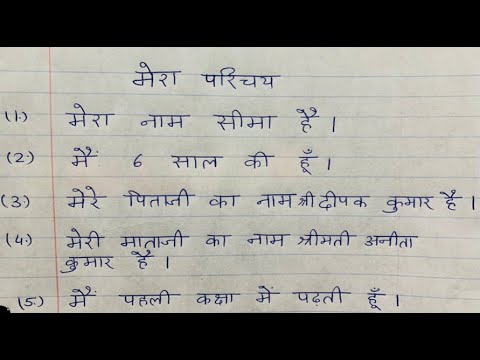 मेरा परिचय
(1.) मेरा नाम सीमा है ।
(2.) मैं 6 साल की हूँ ।
(3.) मेरे पिताजी का नाम श्री दीपक कुमार है ।
(4.) मेरी माताजी का नाम श्रीमती अनीता
कुमार है ।
(5.) मैं पहली कक्षा में पढ़ती हूँ ।